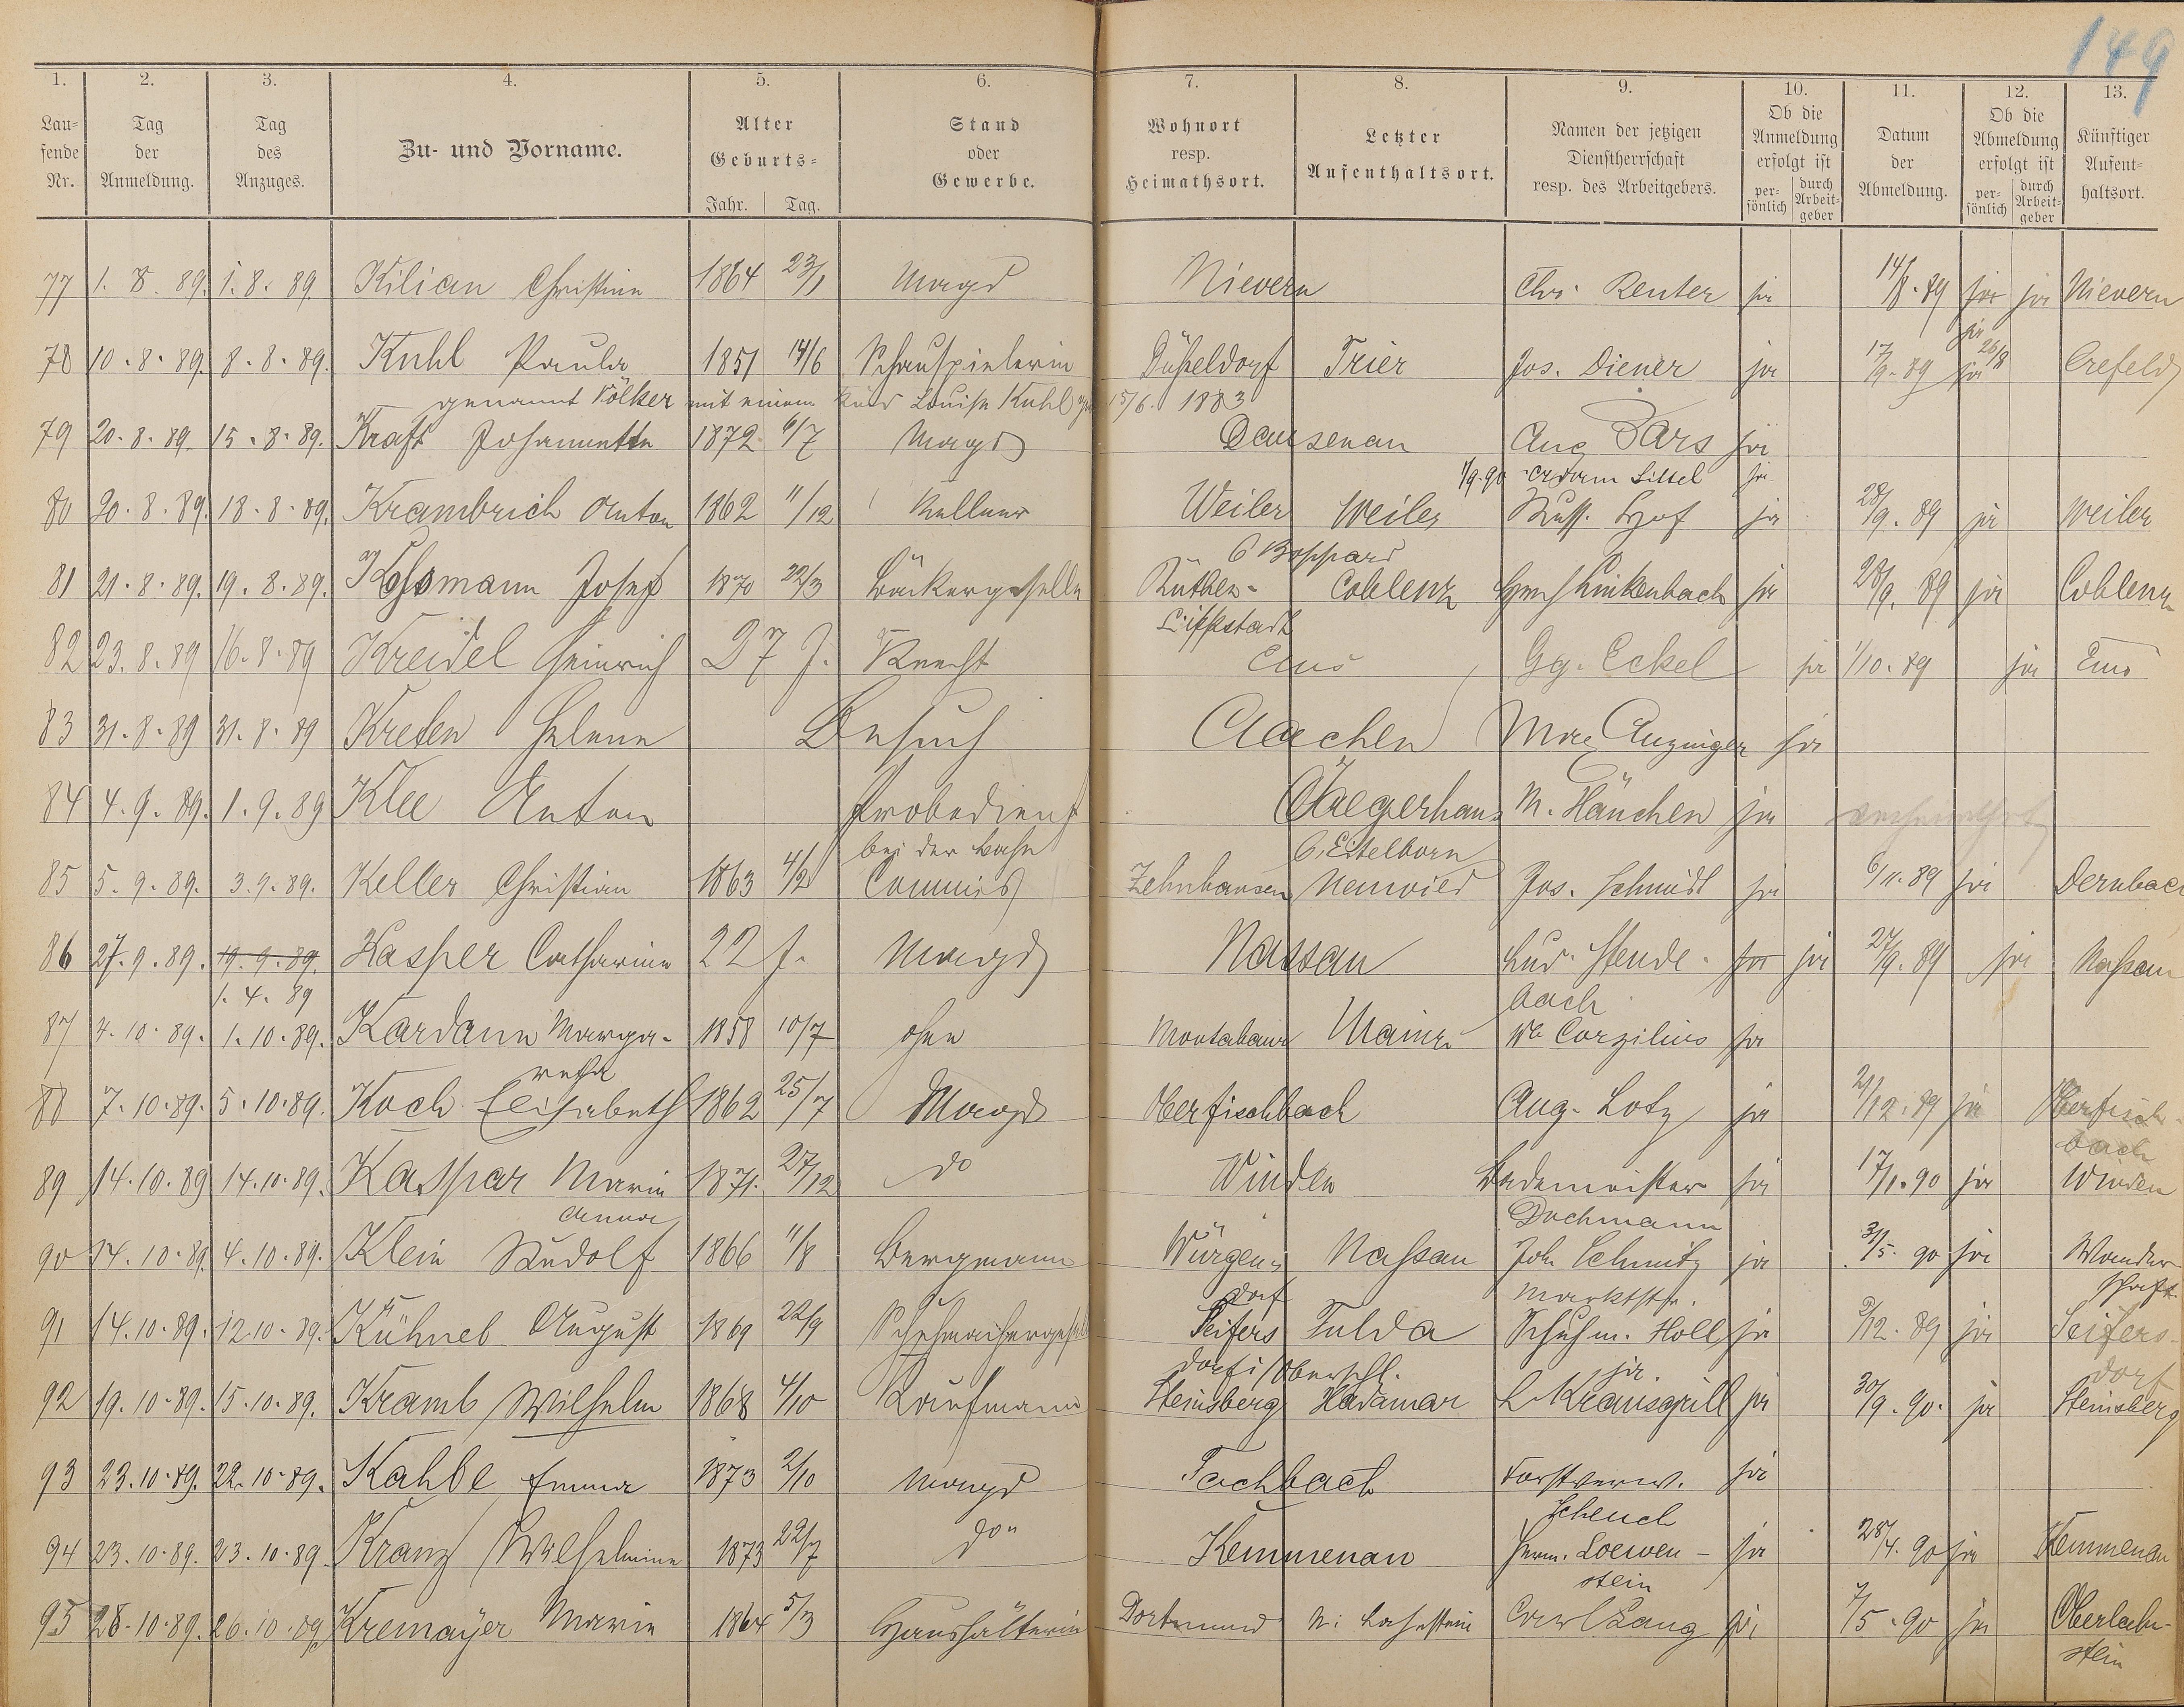 149
1. 2. 3. 4. 5. 6. 7. 8. 9. 10. 11. 12. 13.
Laufende Nr. Tag der Anmeldung. Tag des Anzuges. Zu- und Vorname. Alter Geburts- Jahr. Tag. Stand oder Gewerbe. Wohnort resp. Heimathsort. Letzter Aufenthaltsort. Namen der jetzigen Dienstherrschaft resp. des Arbeitgebers. Ob die Anmeldung erfolgt ist persönlich durch Arbeitgeber Datum der Abmeldung. Ob die Abmeldung erfolgt ist persönlich durch Arbeitgeber Künftiger Aufenthaltsort.
77 1. 8. 89. 1. 8. 89. Kilian Christine 1864 23/1 Magd Nievern Chr. Reuter ja 14/8. 89 ja ja Nievern
78 10. 8. 89. 8. 8. 89. Kuhl Paula 1851 14/6 Schauspielerin Düsseldorf Trier Jos. Diener ja 17/9. 89 ja ja 26/8 Crefeld
genannt Völker mit einem Kind Louise Kuhl 15/6. 1883
79 20. 8. 89. 15. 8. 89. Kraft Johannette 1872 6/7 Magd Dausenau Aug Bars ja
1/9. 90 Adam Sittel ja
80 20. 8. 89. 18. 8. 89. Krambrich Anton 1862 11/12 Kellner Weiler Weiler Russ. Hof ja 28/9. 89 ja Weiler
b Boppard
81 21. 8. 89. 19. 8. 89. Kossmann Josef 1870 22/3 Bäckergeselle Rüthen- Coblenz Linkenbach ja 28/9. 89 ja Coblenz
Lippstadt
82 23. 8. 89 16. 8. 89 Kreidel Heinrich 27 J. Knecht Ems Gg. Eckel ja 1/10. 89 ja Ems
83 31. 8. 89 31. 8. 89 Kreten Helene Besuch Aachen Max Anzinger ja
84 4. 9. 89. 1. 9. 89 Klee Anton Probedienst Jaegerhaus M. Hänchen ja
bei der Bahn b. Eitelborn
85 5. 9. 89. 3. 9. 89. Keller Christian 1863 4/2 Commis Zehnhausen Neuwied Jos. Schmidt ja 6/11. 89 ja Dernbach
86 27. 9. 89. 19. 9. 89. Kasper Catharina 22 J. Magd Nassau Lud. Stende- ja ja 27/9. 89 ja Nassau
1. 4. 89 bach
87 4. 10. 89. 1. 10. 89. Kardann Marga- 1858 10/7 ohne Montabaur Mainz We Corzilius ja
retha
88 7. 10. 89. 5. 10. 89. Koch Elisabeth 1862 25/7 Magd Oberfischbach Aug. Lotz ja 21/12. 89 ja Oberfisch-
bach
89 14. 10. 89 14. 10. 89. Kaspar Maria 1871. 27/12 do Winden Bademeister ja 17/1. 90 ja Winden
Anna Dochmann
90 14. 10. 89. 4. 10. 89. Klein Rudolf 1866 11/8 Bergmann Würgen- Nassau Joh. Schmitz ja 31/5. 90 ja Wander-
dorf Marktstr. schaft.
91 14. 10. 89. 12. 10. 89. Kühnel August 1869 22/9 Schuhmachergesel Seifers Fulda Schuhm. Holl ja 3/12. 89 ja Seifers-
dorf i/Oberschl. ja dorf
92 19. 10. 89. 15. 10. 89. Kramb Wilhelm 1868 4/10 Kaufmann Steinsberg Hadamar L. Krausgrill ja 30/9. 90. ja Steinsberg
93 23. 10. 89. 22. 10. 89. Kahbe Emma 1873 2/10 Magd Fachbach Forstverw. ja
Scheuch
94 23. 10. 89. 23. 10. 89. Kranz Wilhelmine 1873 22/7 do Kemmenau Herm. Loewen- ja 28/4. 90 ja Kemmenau
stein
95 28. 10. 89. 26. 10. 89. Kremayer Maria 1864 5/3 Haushälterin Dortmund N: Lahnstein Carl Lang ja 7/5. 90 ja Oberlahn-
stein